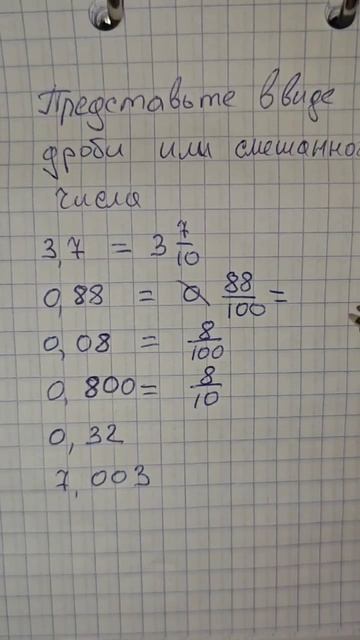 Представьте в виде
дроби или смешанно
числа
3,7 = 3 7/10
0,88 = 0 88/100 =
0,08 = 8/100
0,800 = 8/10
0,32
7,003